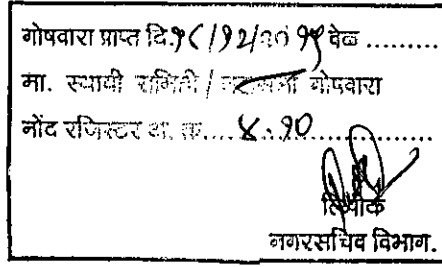 गोषवारा प्राप्त दि.१८/१२/२०१५ वेळ .........
मा. स्थायी समिती / महासभा गोषवारा
नोंद रजिस्टर अ. क्र.... ४.१० ..............
लिपीक
नगरसचिव विभाग.